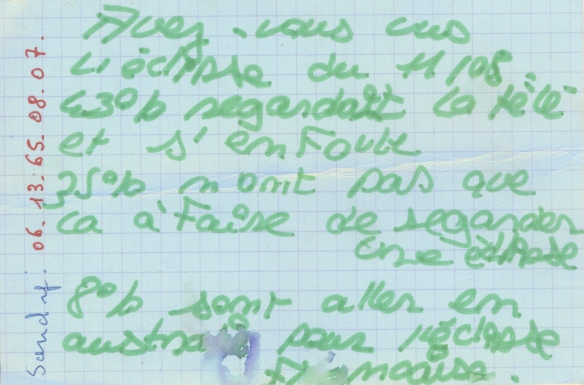 Avez-vous vus
L'éclipse du 11/08.
43% regardait la télé
et s'en Foute
35% n'ont pas que
ca à Faire de regarder
une éclipse
8% sont aller en
pour l'éclipse
Sandy. 06.13.65.08.07.